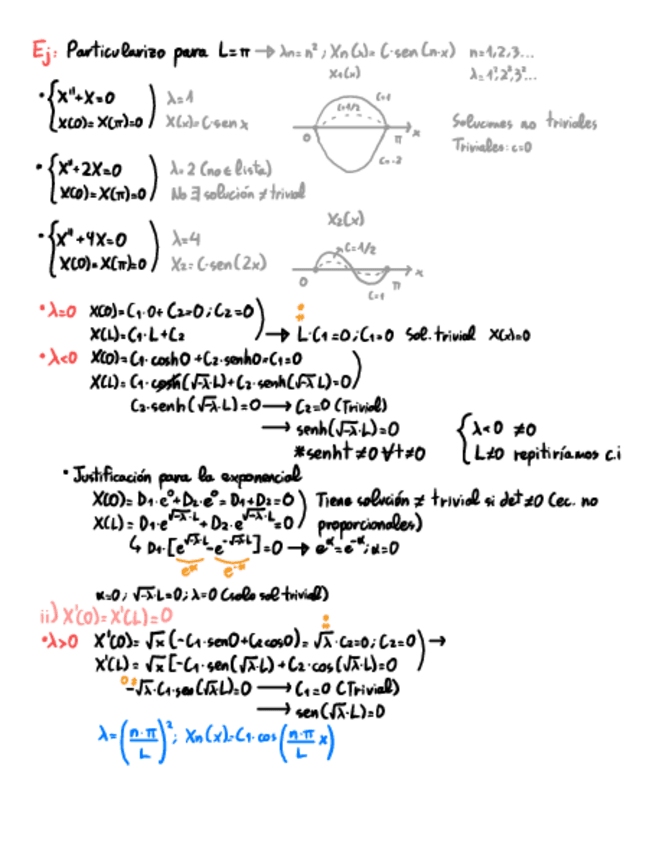 Ej: Particularizo para L=π → λn=n²; Xn(x)=C·sen(n·x) n=1,2,3...
X₁(x) λ=1²,2²,3²...
• {X''+X=0 λ=1 C=1/2 C=1
X(0)=X(π)=0) X(x)=C·sen x 0 π x Soluciones no triviales
C=-2 Triviales: c=0
• {X''+2X=0 λ=2 (no ∈ lista)
X(0)=X(π)=0) No ∃ solución ≠ trivial
X₂(x)
• {X''+4X=0 λ=4 C=1/2
X(0)=X(π)=0) X₂=C·sen(2x) 0 π x
C=1
• λ=0 X(0)=C₁·0+C₂=0; C₂=0)
X(L)=C₁·L+C₂ → L·C₁=0; C₁=0 Sol. trivial X(x)=0
• λ<0 X(0)=C₁·cosh0+C₂·senh0=C₁=0
X(L)=C₁·cosh(√-λ·L)+C₂·senh(√-λL)=0)
C₂·senh(√-λ·L)=0 → C₂=0 (Trivial)
→ senh(√-λ·L)=0 {λ<0 ≠0
*senht≠0 ∀t≠0 L≠0 repitiríamos c.i
• Justificación para la exponencial
X(0)=D₁·e⁰+D₂·e⁰=D₁+D₂=0) Tiene solución ≠ trivial si det≠0 (ec. no
X(L)=D₁·e^√-λ·L+D₂·e^√-λ·L=0) proporcionales)
↳ D₁·[e^√-λ·L-e^-√-λL]=0 → e^α=e^-α; α=0
e^α e^-α
α=0; √-λ·L=0; λ=0 (solo sol trivial)
ii) X'(0)=X'(L)=0
• λ>0 X'(0)=√λ(-C₁·sen0+C₂cos0)=√λ·C₂=0; C₂=0) →
X'(L)=√λ[-C₁·sen(√λ·L)+C₂·cos(√λ·L)=0
-√λ·C₁·sen(√λL)=0 → C₁=0 (Trivial)
→ sen(√λ·L)=0
λ=(n·π/L)²; Xn(x)=C₁·cos(n·π/L x)